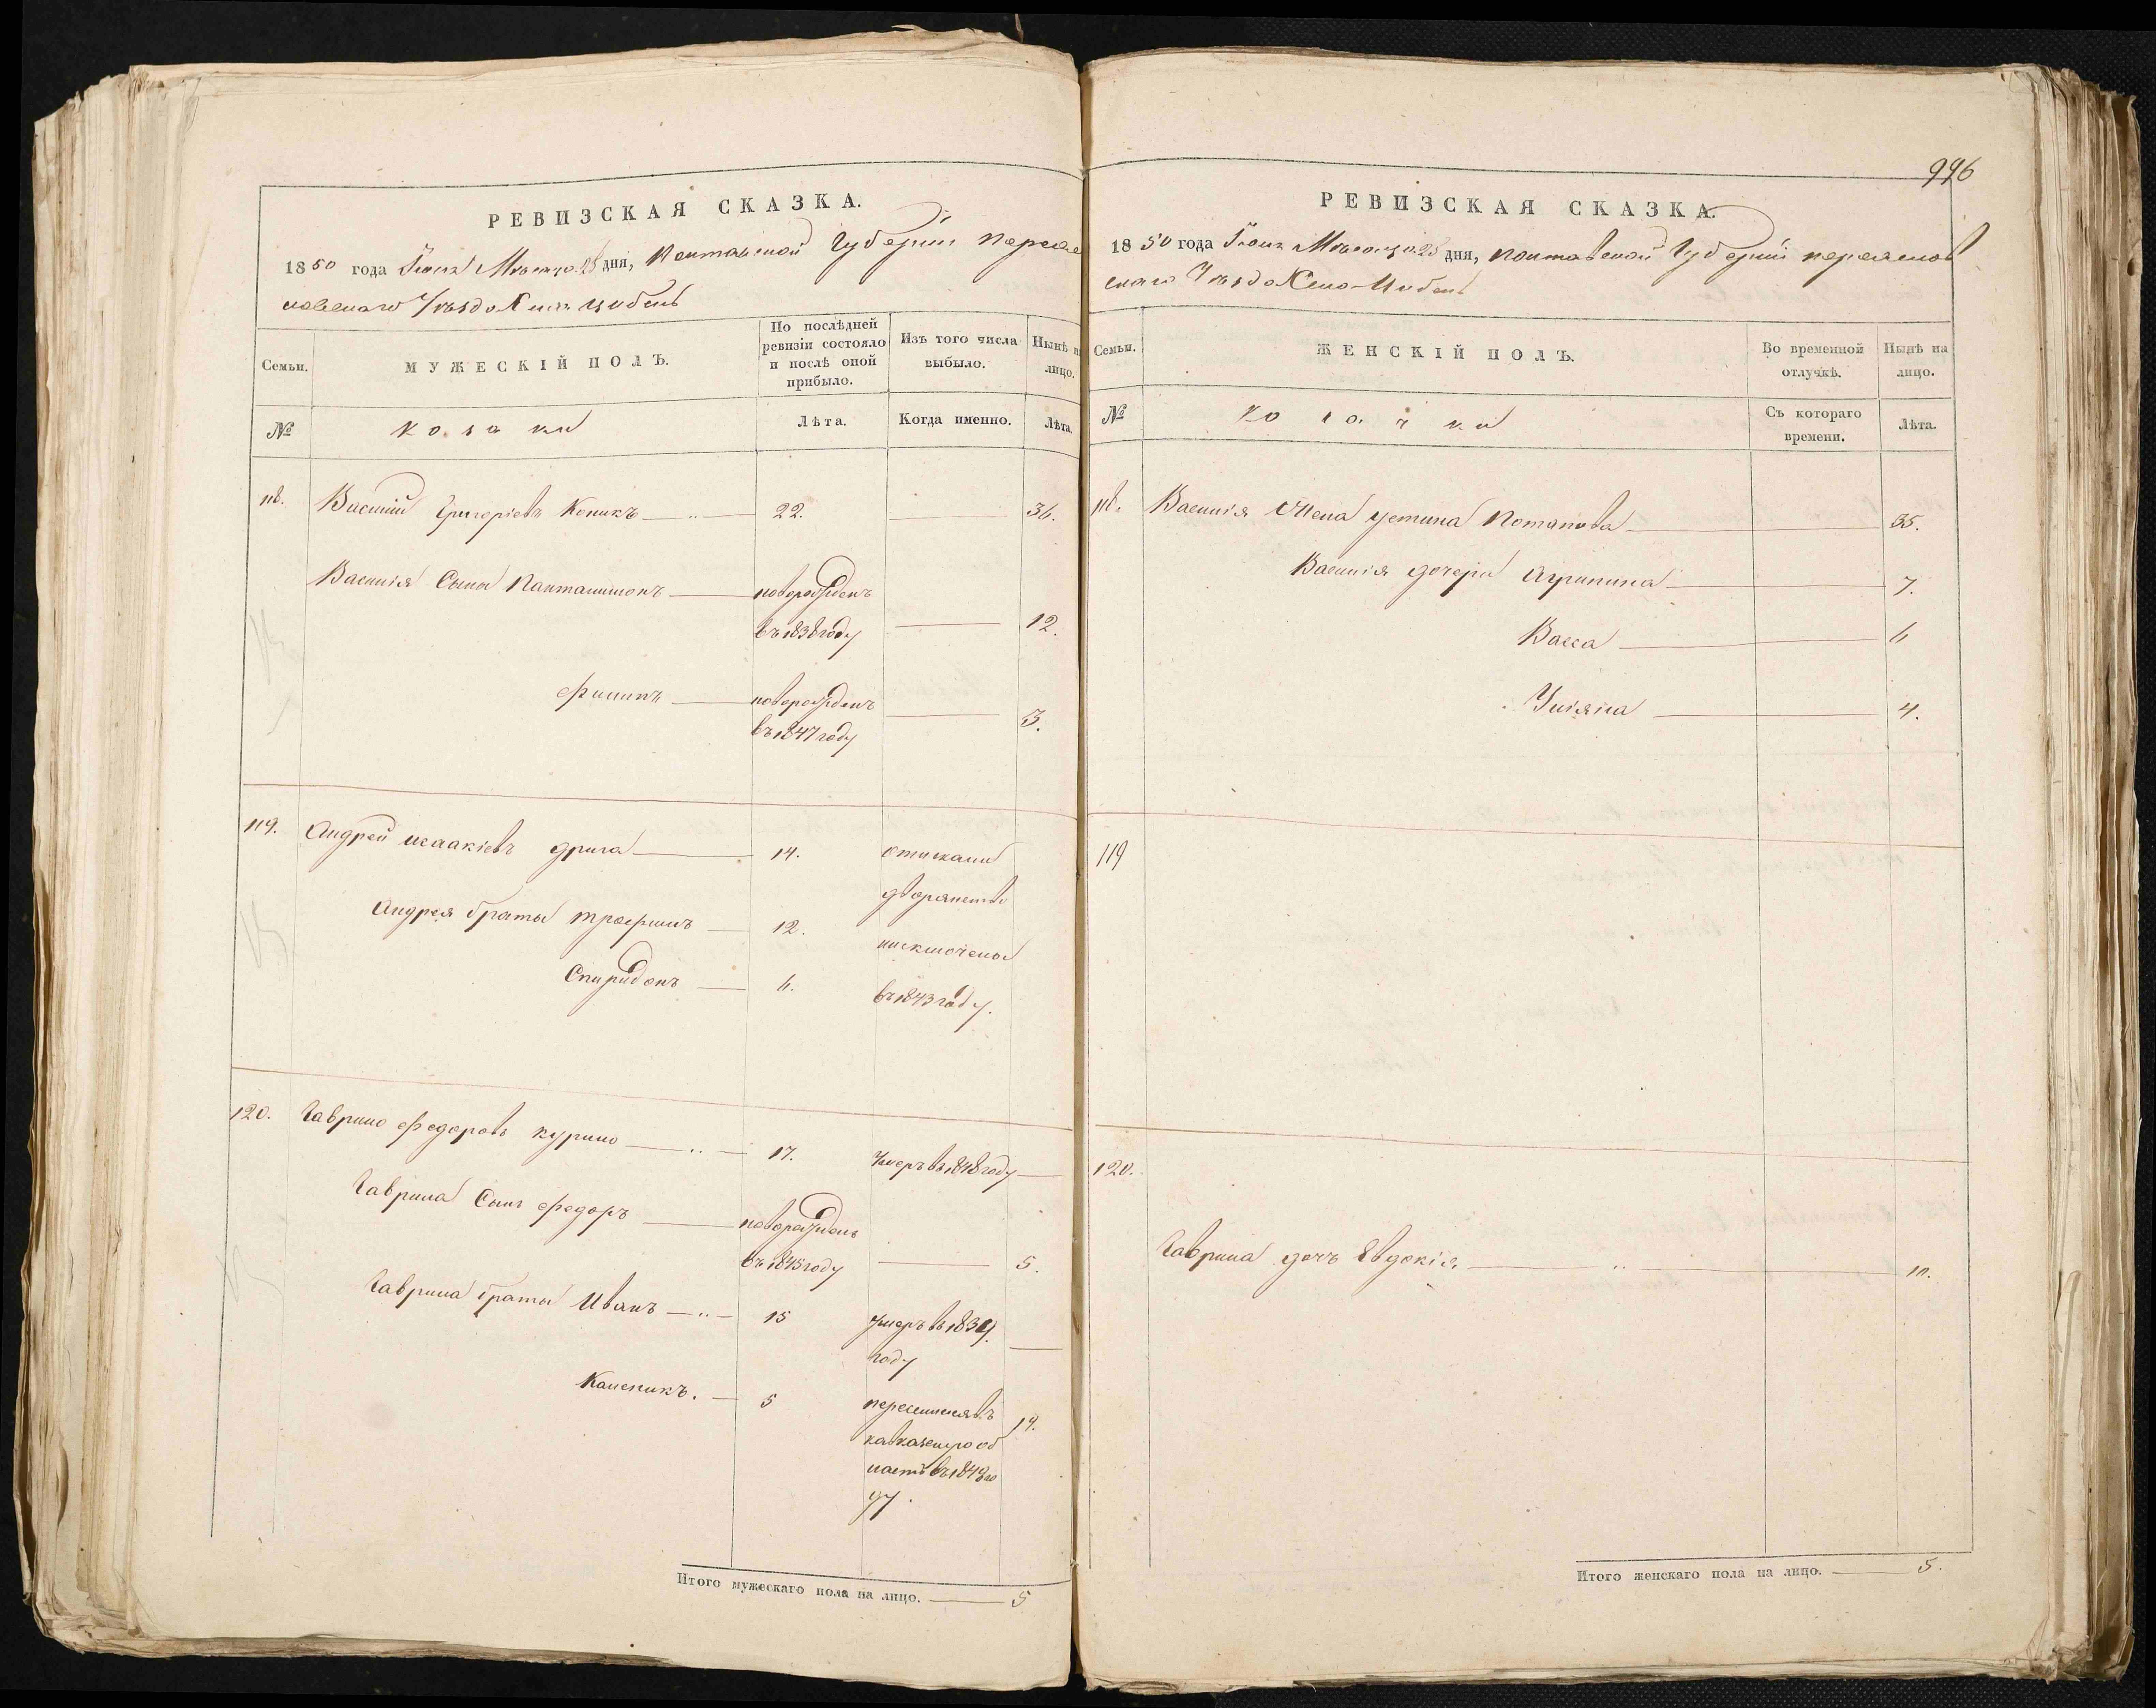 РЕВИЗСКАЯ СКАЗКА.
1850 года Іюня Мѣсяца 25 дня, Полтавской Губерніи Переяс
ловскаго Уѣзда Села Цибель
Семьи.
МУЖЕСКІЙ ПОЛЪ.
По послѣдней ревизіи состояло и послѣ оной прибыло.
Изъ того числа выбыло.
Нынѣ на лицо.
№
Козаки
Лѣта.
Когда именно.
Лѣта.
118. Василий Григоріевъ Коникъ 22. 36.
Василія Сыны Панталимонъ новорожденъ
въ 1838 году 12.
Филипъ новорожденъ
въ 1847 году 3.
119. Андрей Исаакіевъ Дрига 14. отискали
дворянство
Андрея браты Трофимъ 12. и исключены
Спиридонъ 6. въ 1843 году.
120. Гаврило Федоровъ Курило 17. Умеръ въ 1848 году
Гаврила Сынъ Федоръ новорожденъ
въ 1845 году 5.
Гаврила браты Иванъ 15 Умеръ въ 1839.
году
Каленикъ. 5 переселился въ 19.
кавказскую об
ласть въ 1848 го
ду.
Итого мужескаго пола на лицо. 5
996
РЕВИЗСКАЯ СКАЗКА.
1850 года Іюня Мѣсяца 25 дня, Полтавской Губерніи Переяслов
скаго Уѣзда Села Цибель
Семьи.
ЖЕНСКІЙ ПОЛЪ.
Во временной отлучкѣ.
Нынѣ на лицо.
№
Козачки
Съ котораго времени.
Лѣта.
118. Василія Жена Устина Потапова 35.
Василія дочери Агрипина 7.
Васса 6
Уліяна 4.
119
120.
Гаврила дочь Евдокія 11.
Итого женскаго пола на лицо. 5.